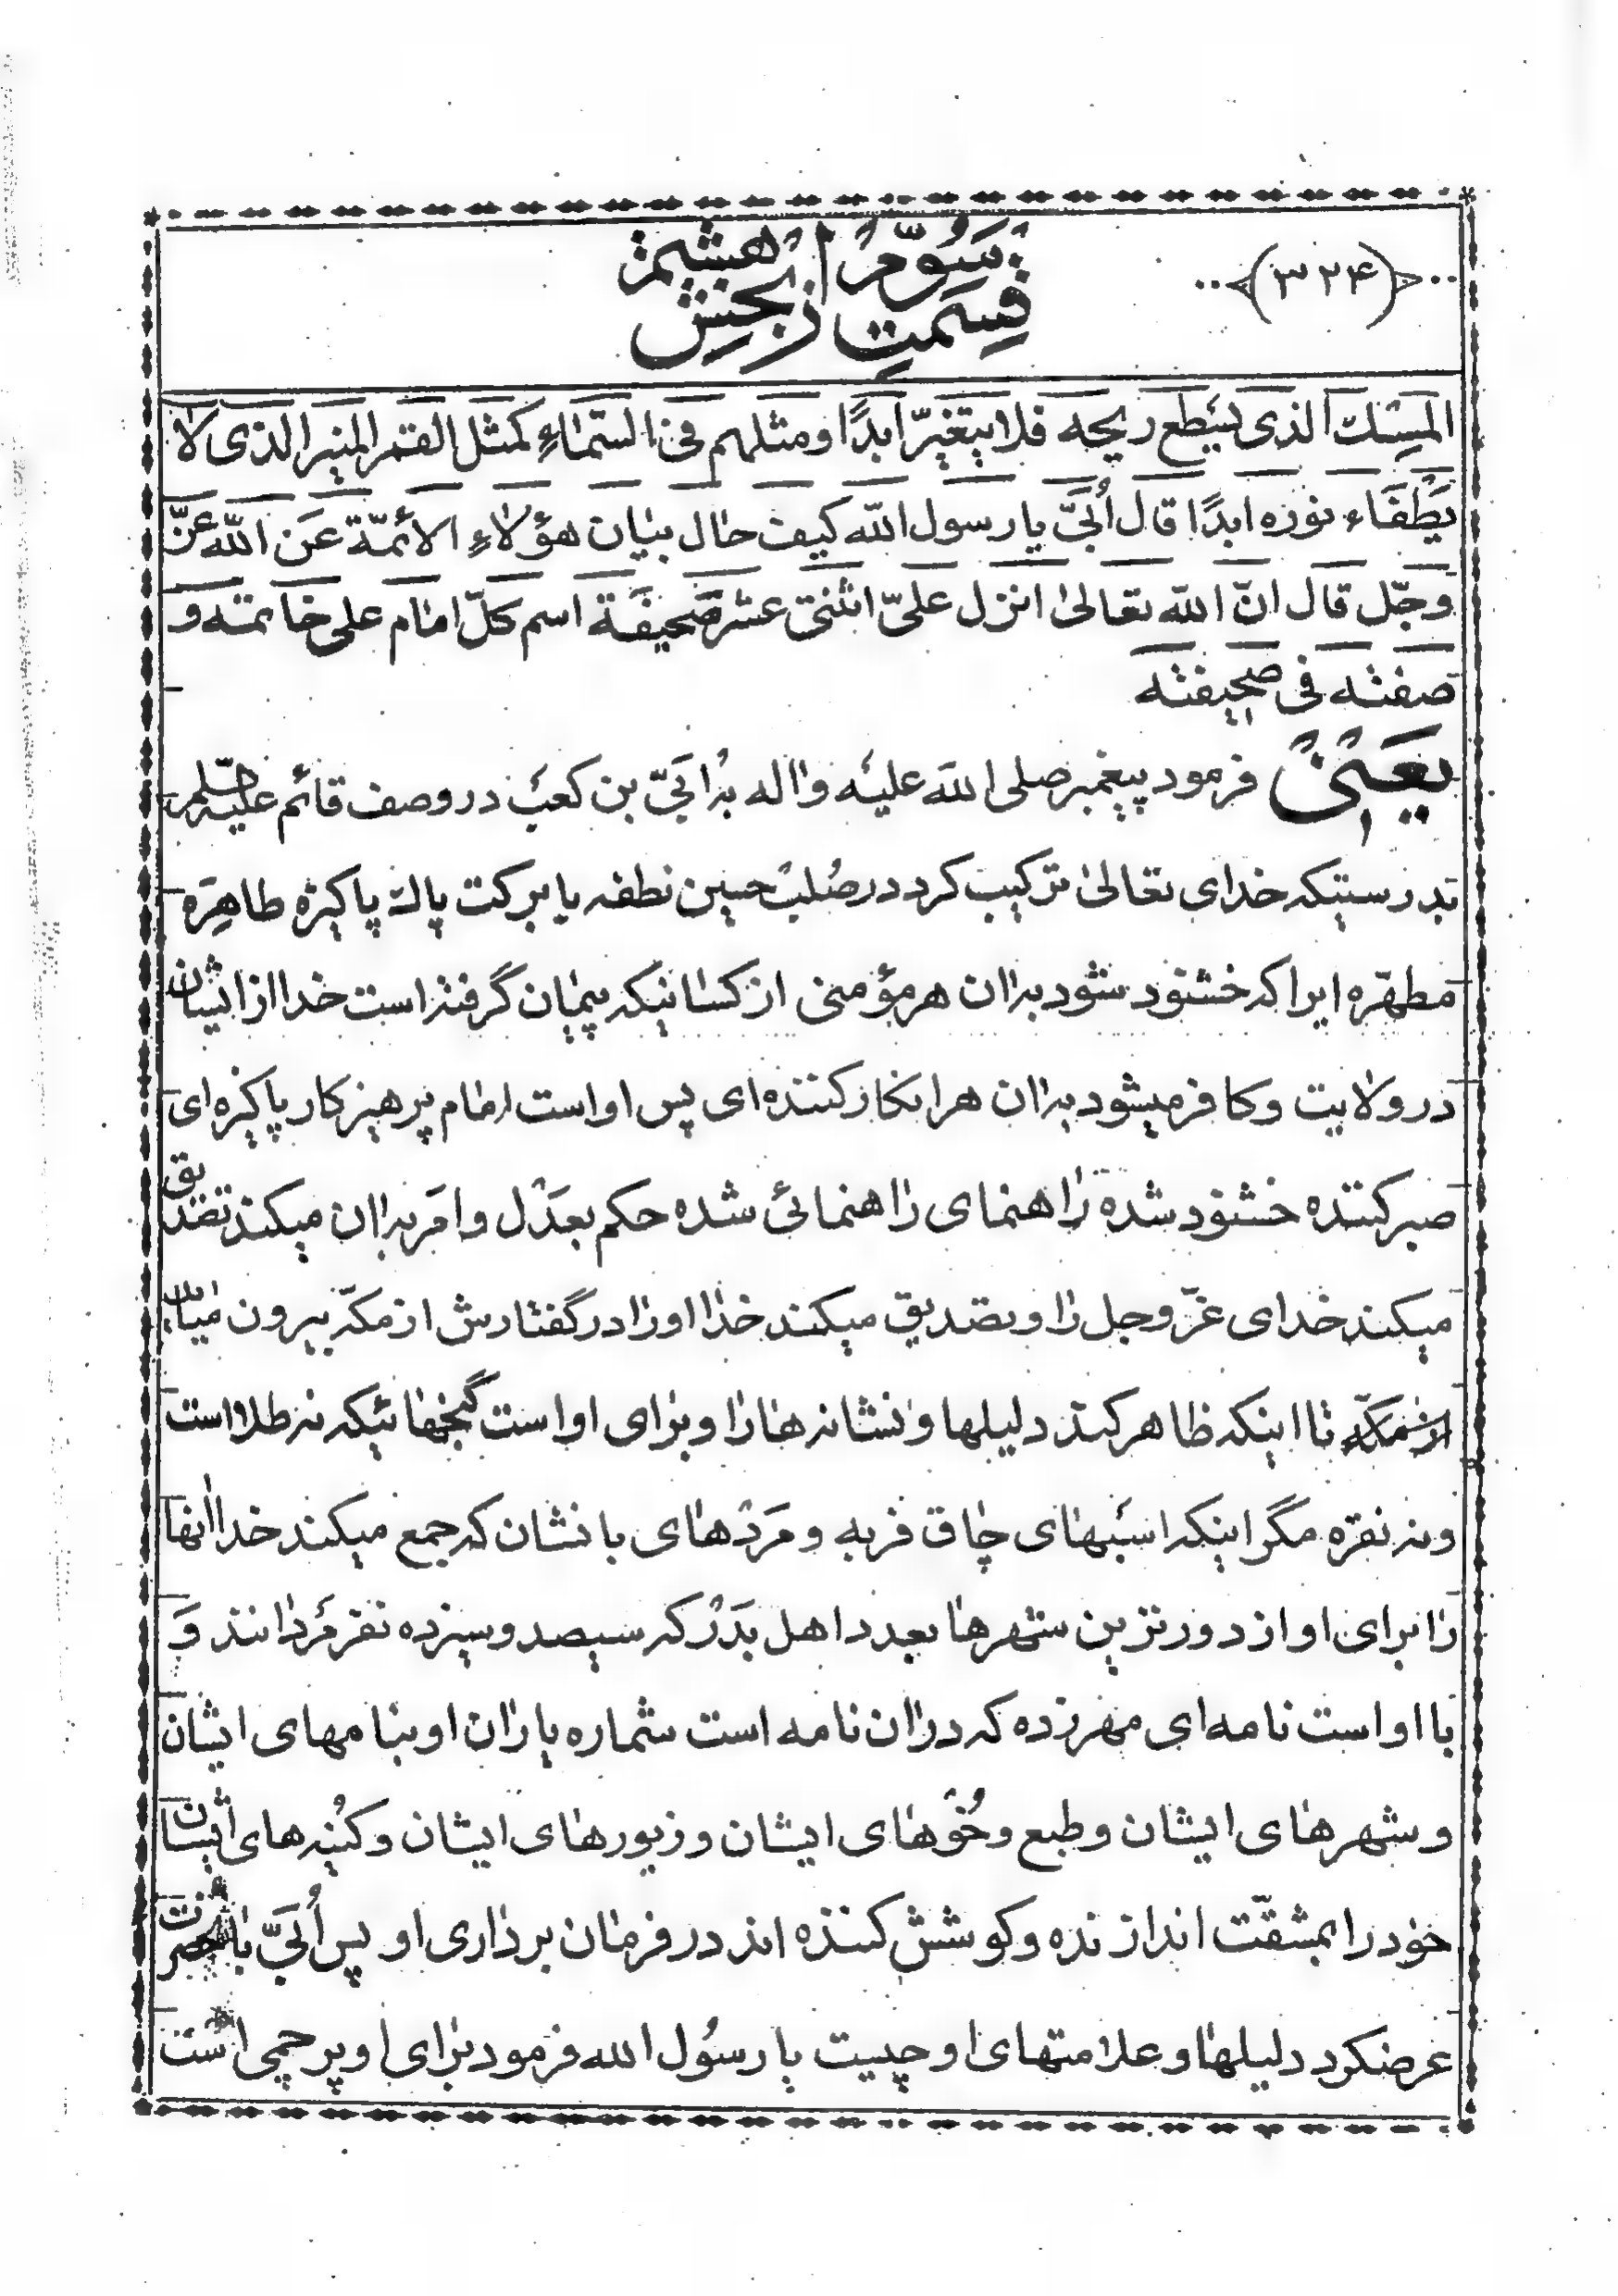 (۳۲۴)
قسمت سوّم از بخش هشتم
المسك الذى يسطع ريحه فلا يتغيّر ابدًا و مثلهم فى السّماءِ كمثل القمر المنير الذى لا
يطفاء نوره ابدًا قال اُبَىّ يا رسول الله كيف حال بيان هؤلاءِ الأئمّة عن الله عزّ
و جّل قال انّ الله تعالى انزل علىّ اثنتى عشر صحيفة اسم كلّ امام على خاتمته و
صفته فى صحيفته
يعنى فرمود پيغمبر صلى الله عليه و اله به اُبَىّ بن كعب در وصف قائم عليه السلام
بدرستيكه خداى تعالى تركيب كرد در صُلب حسين نطفه با بركت پاك پاكيزه طاهرَه
مطهّره ايرا كه خشنود شود به ان هر مؤمنى از كسانيكه پيمان گرفته است خدا از ايشان
در ولايت و كافر ميشود به ان هر انكار كننده‌اى پس او است امام پرهيزكار پاكيزه‌اى
صبر كننده خشنود شده راهنماى راهنمائى شده حكم بعدل و امر به ان ميكند تصديق
ميكند خداى عزّ و جل را و تصديق ميكند خدا او را در گفتارش از مكّه بيرون ميايد
از مكّه تا اينكه ظاهر كند دليلها و نشانه‌ها را و براى او است گنجهائيكه نه طلا است
و نه نقره مگر اينكه اسبهاى چاق فربه و مَردهاى با نشان كه جمع ميكند خدا انها
را براى او از دورترين شهرها بعدد اهل بدر كه سيصد و سيزده نفر مُردانند وَ
با او است نامه‌اى مهر زده كه در ان نامه است شماره ياران او بنامهاى ايشان
و شهرهاى ايشان و طبع و خُوهاى ايشان و زيورهاى ايشان و كُنيه‌هاى ايشان
خود را بمشقّت اندازنده و كوشش كننده اند در فرمان بردارى او پس اُبَىّ بانحضرت
عرضكرد دليلها و علامتهاى او چيست يا رسول الله فرمود براى او پرچمى است